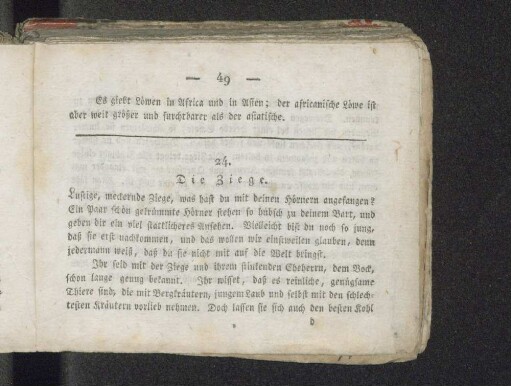 — 49 —
Es giebt Löwen in Africa und in Asien; der africanische Löwe ist
aber weit größer und furchtbarer als der asiatische.
24.
Die Ziege.
Lustige, meckernde Ziege, was hast du mit deinen Hörnern angefangen?
Ein Paar schön gekrümmte Hörner stehen so hübsch zu deinem Bart, und
geben dir ein viel stattlicheres Ansehen. Vielleicht bist du noch so jung,
daß sie erst nachkommen, und das wollen wir einstweilen glauben, denn
jedermann weiß, daß du sie nicht mit auf die Welt bringst.
Ihr seid mit der Ziege und ihrem stinkenden Eheherrn, dem Bock,
schon lange genug bekannt. Ihr wisset, daß es reinliche, genügsame
Thiere sind, die mit Bergkräutern, jungem Laub und selbst mit den schlech-
testen Kräutern vorlieb nehmen. Doch lassen sie sich auch den besten Kohl
d